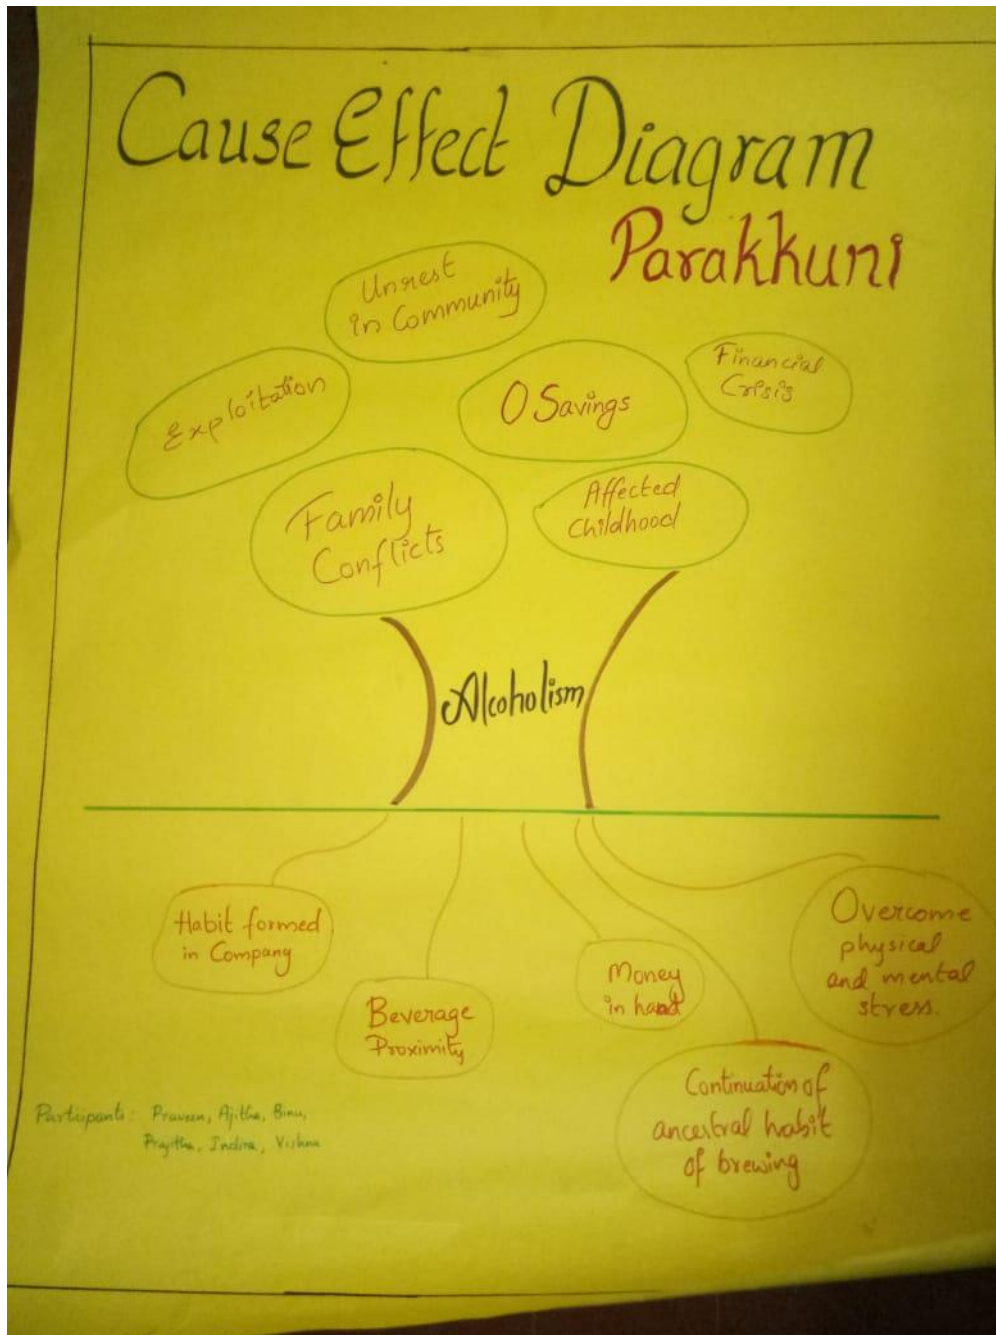 Cause Effect Diagram
Parakkuni
Unrest
in Community
Exploitation
0 Savings
Financial
Crisis
Family
Conflicts
Affected
Childhood
Alcoholism
Habit formed
in Company
Beverage
Proximity
Money
in hand
Overcome
physical
and mental
stress.
Continuation of
ancestral habit
of brewing
Participants: Praveen, Ajitha, Binu,
Prajitha, Indira, Vishnu